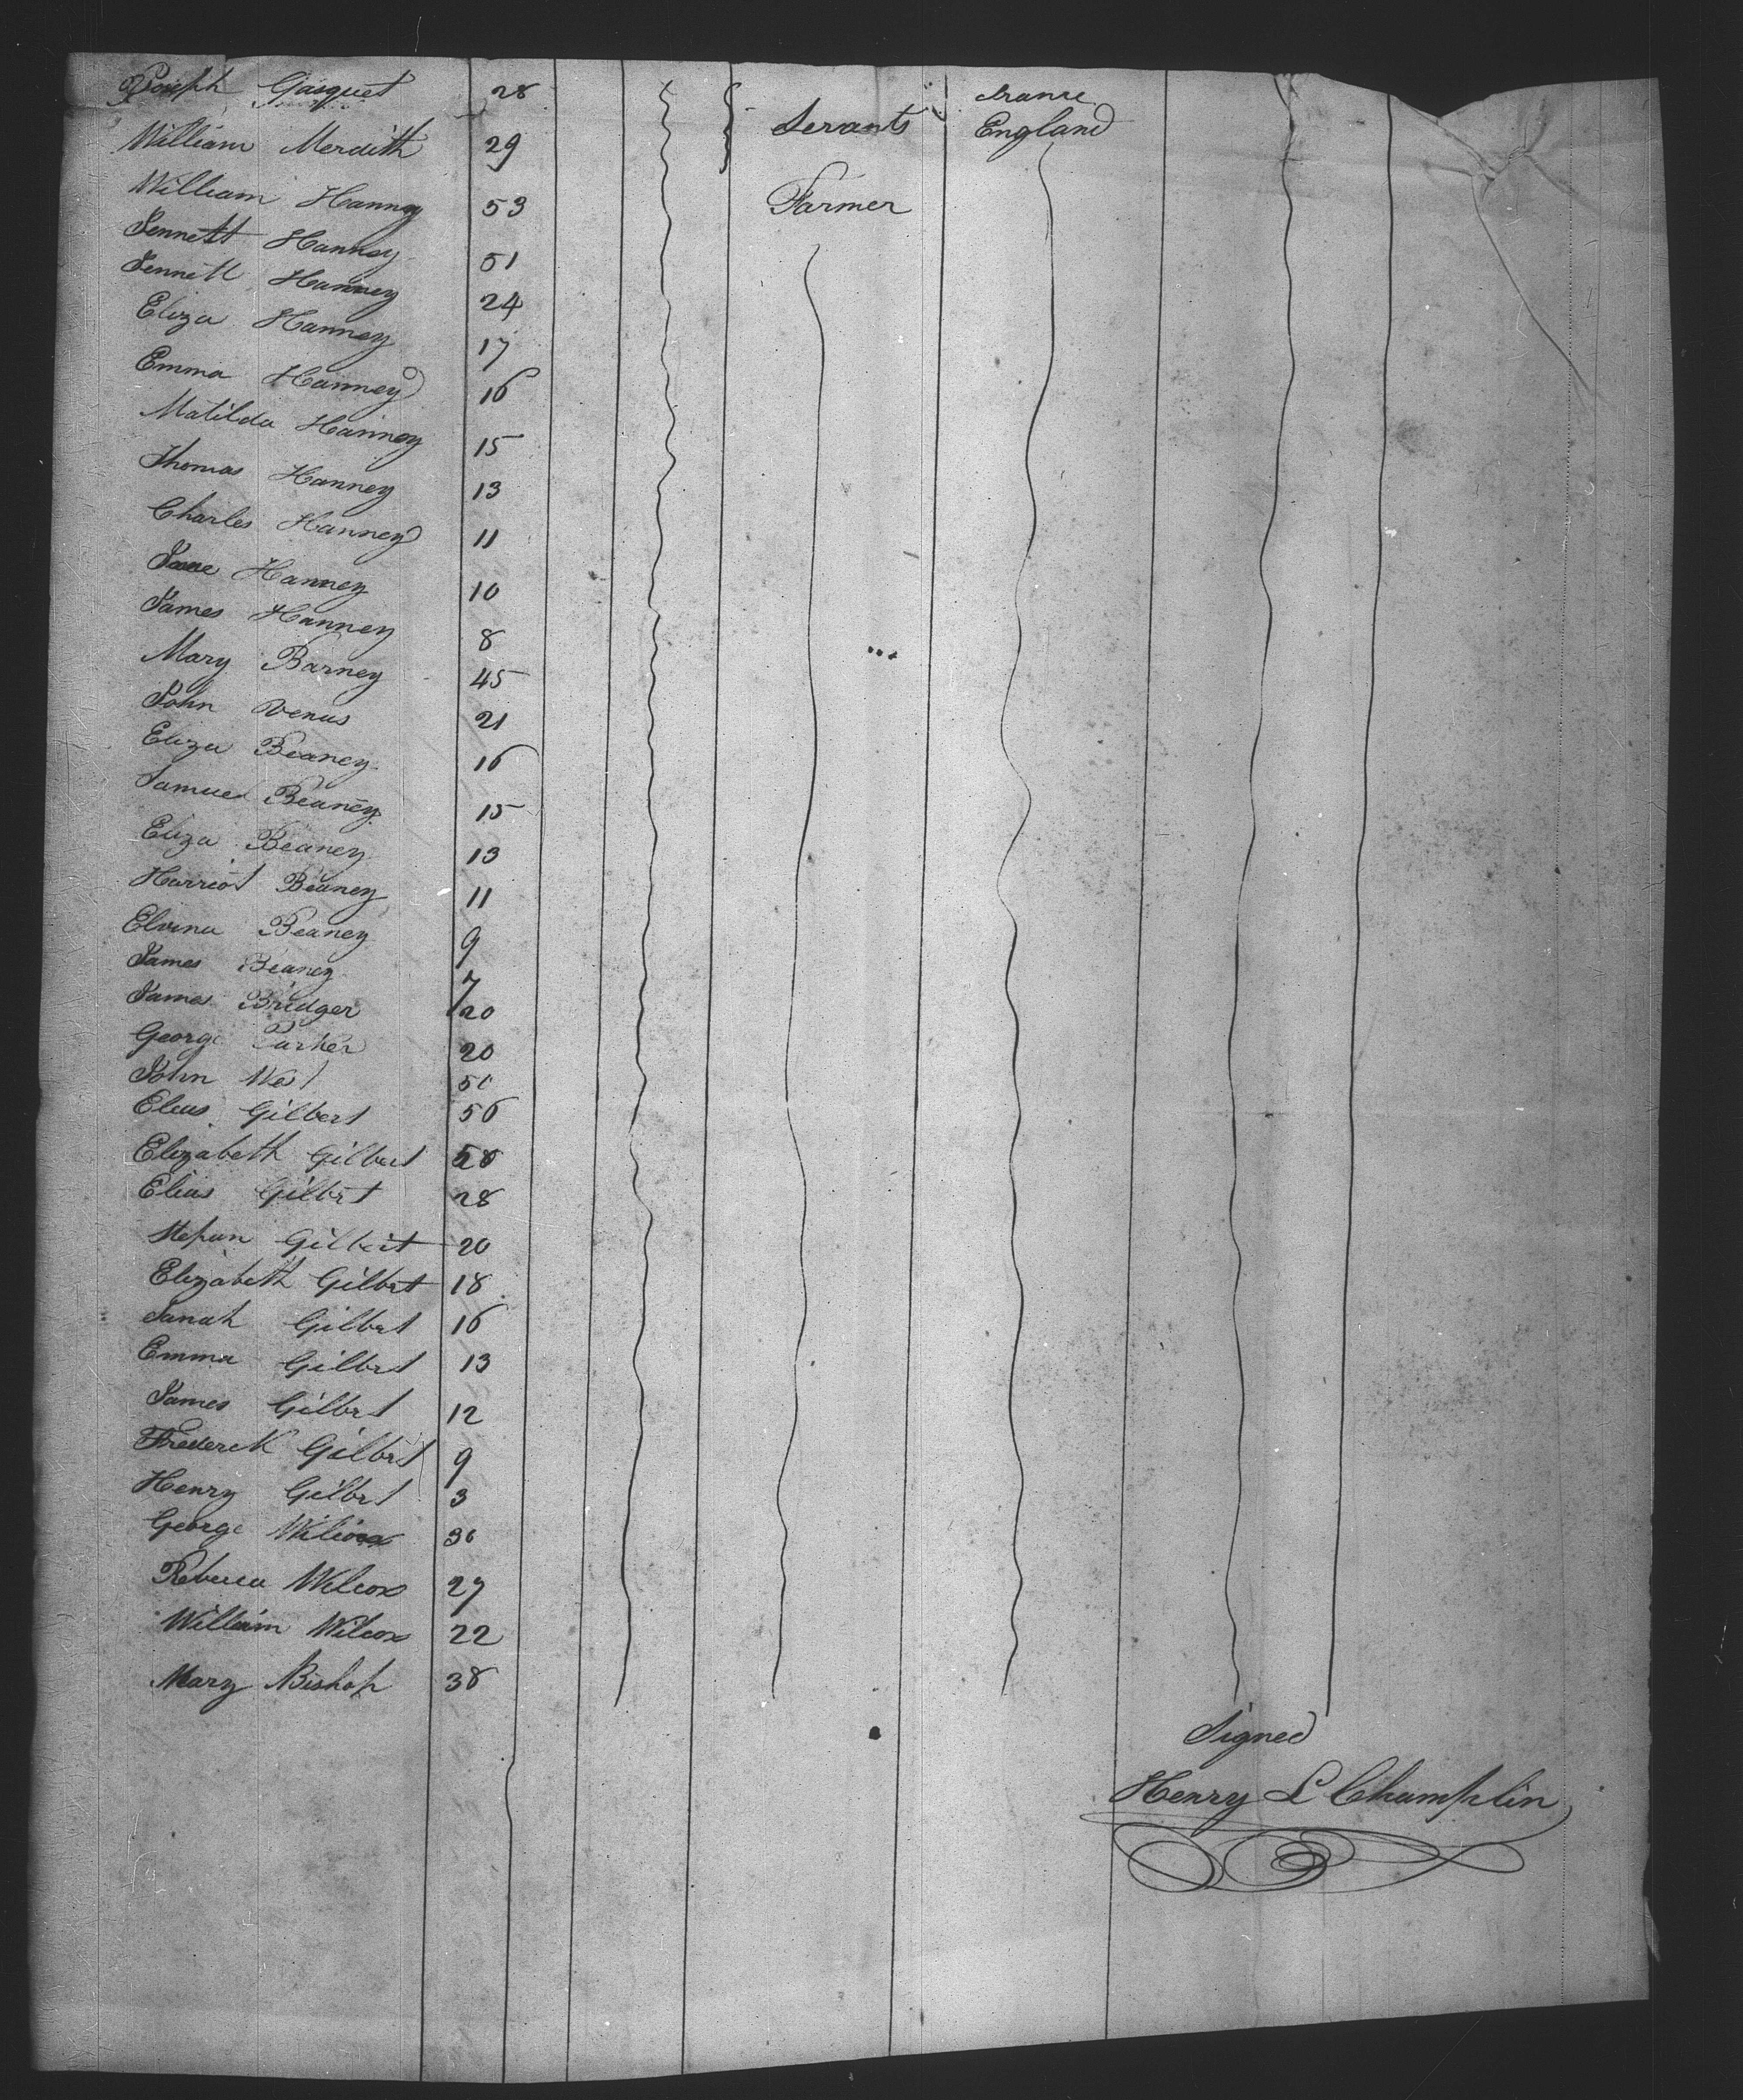 Joseph Gasquet 28 Servants France
William Merdith 29 England
William Hanney 53 Farmer
Jennett Hanney 51
Jennett Hanney 24
Eliza Hanney 17
Emma Hanney 16
Matilda Hanney 15
Thomas Hanney 13
Charles Hanney 11
Hanney 10
James Hanney 8
Mary Barney 45
John Venus 21
Eliza Beaney 16
Samuel Beaney 15
Eliza Beaney 13
Harriot Beaney 11
Elvina Beaney 9
James Beaney 7
James Bridger 20
George Parker 20
John West
Elias Gilbert 56
Elizabeth Gilbert
Elias Gilbert 28
Stepan Gilbert 20
Elizabeth Gilbert 18
Sarah Gilbert 16
Emma Gilbert 13
James Gilbert 12
Frederck Gilbert 9
Henry Gilbert 3
George Wilcox 30
Rebecca Wilcox 27
William Wilcox 22
Mary Bishop 38
Signed
Henry L Champlin